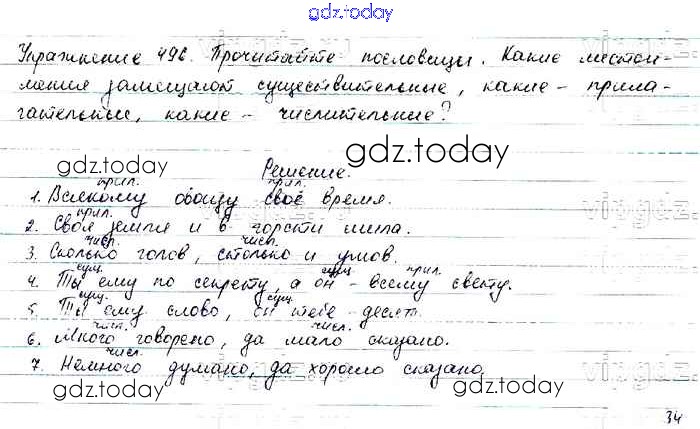 gdz.today
Упражнение 496. Прочитайте пословицы. Какие местои-
мения замещают существительные, какие - прила-
гательные, какие - числительные?
gdz.today
gdz.today
Решение.
прил. прил.
1. Всякому овощу своё время.
прил.
2. Своя земля и в горсти мила.
числ. числ.
3. Сколько голов, столько и умов.
сущ. сущ. прил.
4. Ты ему по секрету, а он - всему свету.
сущ. сущ.
5. Ты ему слово, он тебе десять.
числ. числ.
6. Много говорено, да мало сказано.
числ.
7. Немного думано, да хорошо сказано
gdz.today
gdz.today
vipgdz.
34